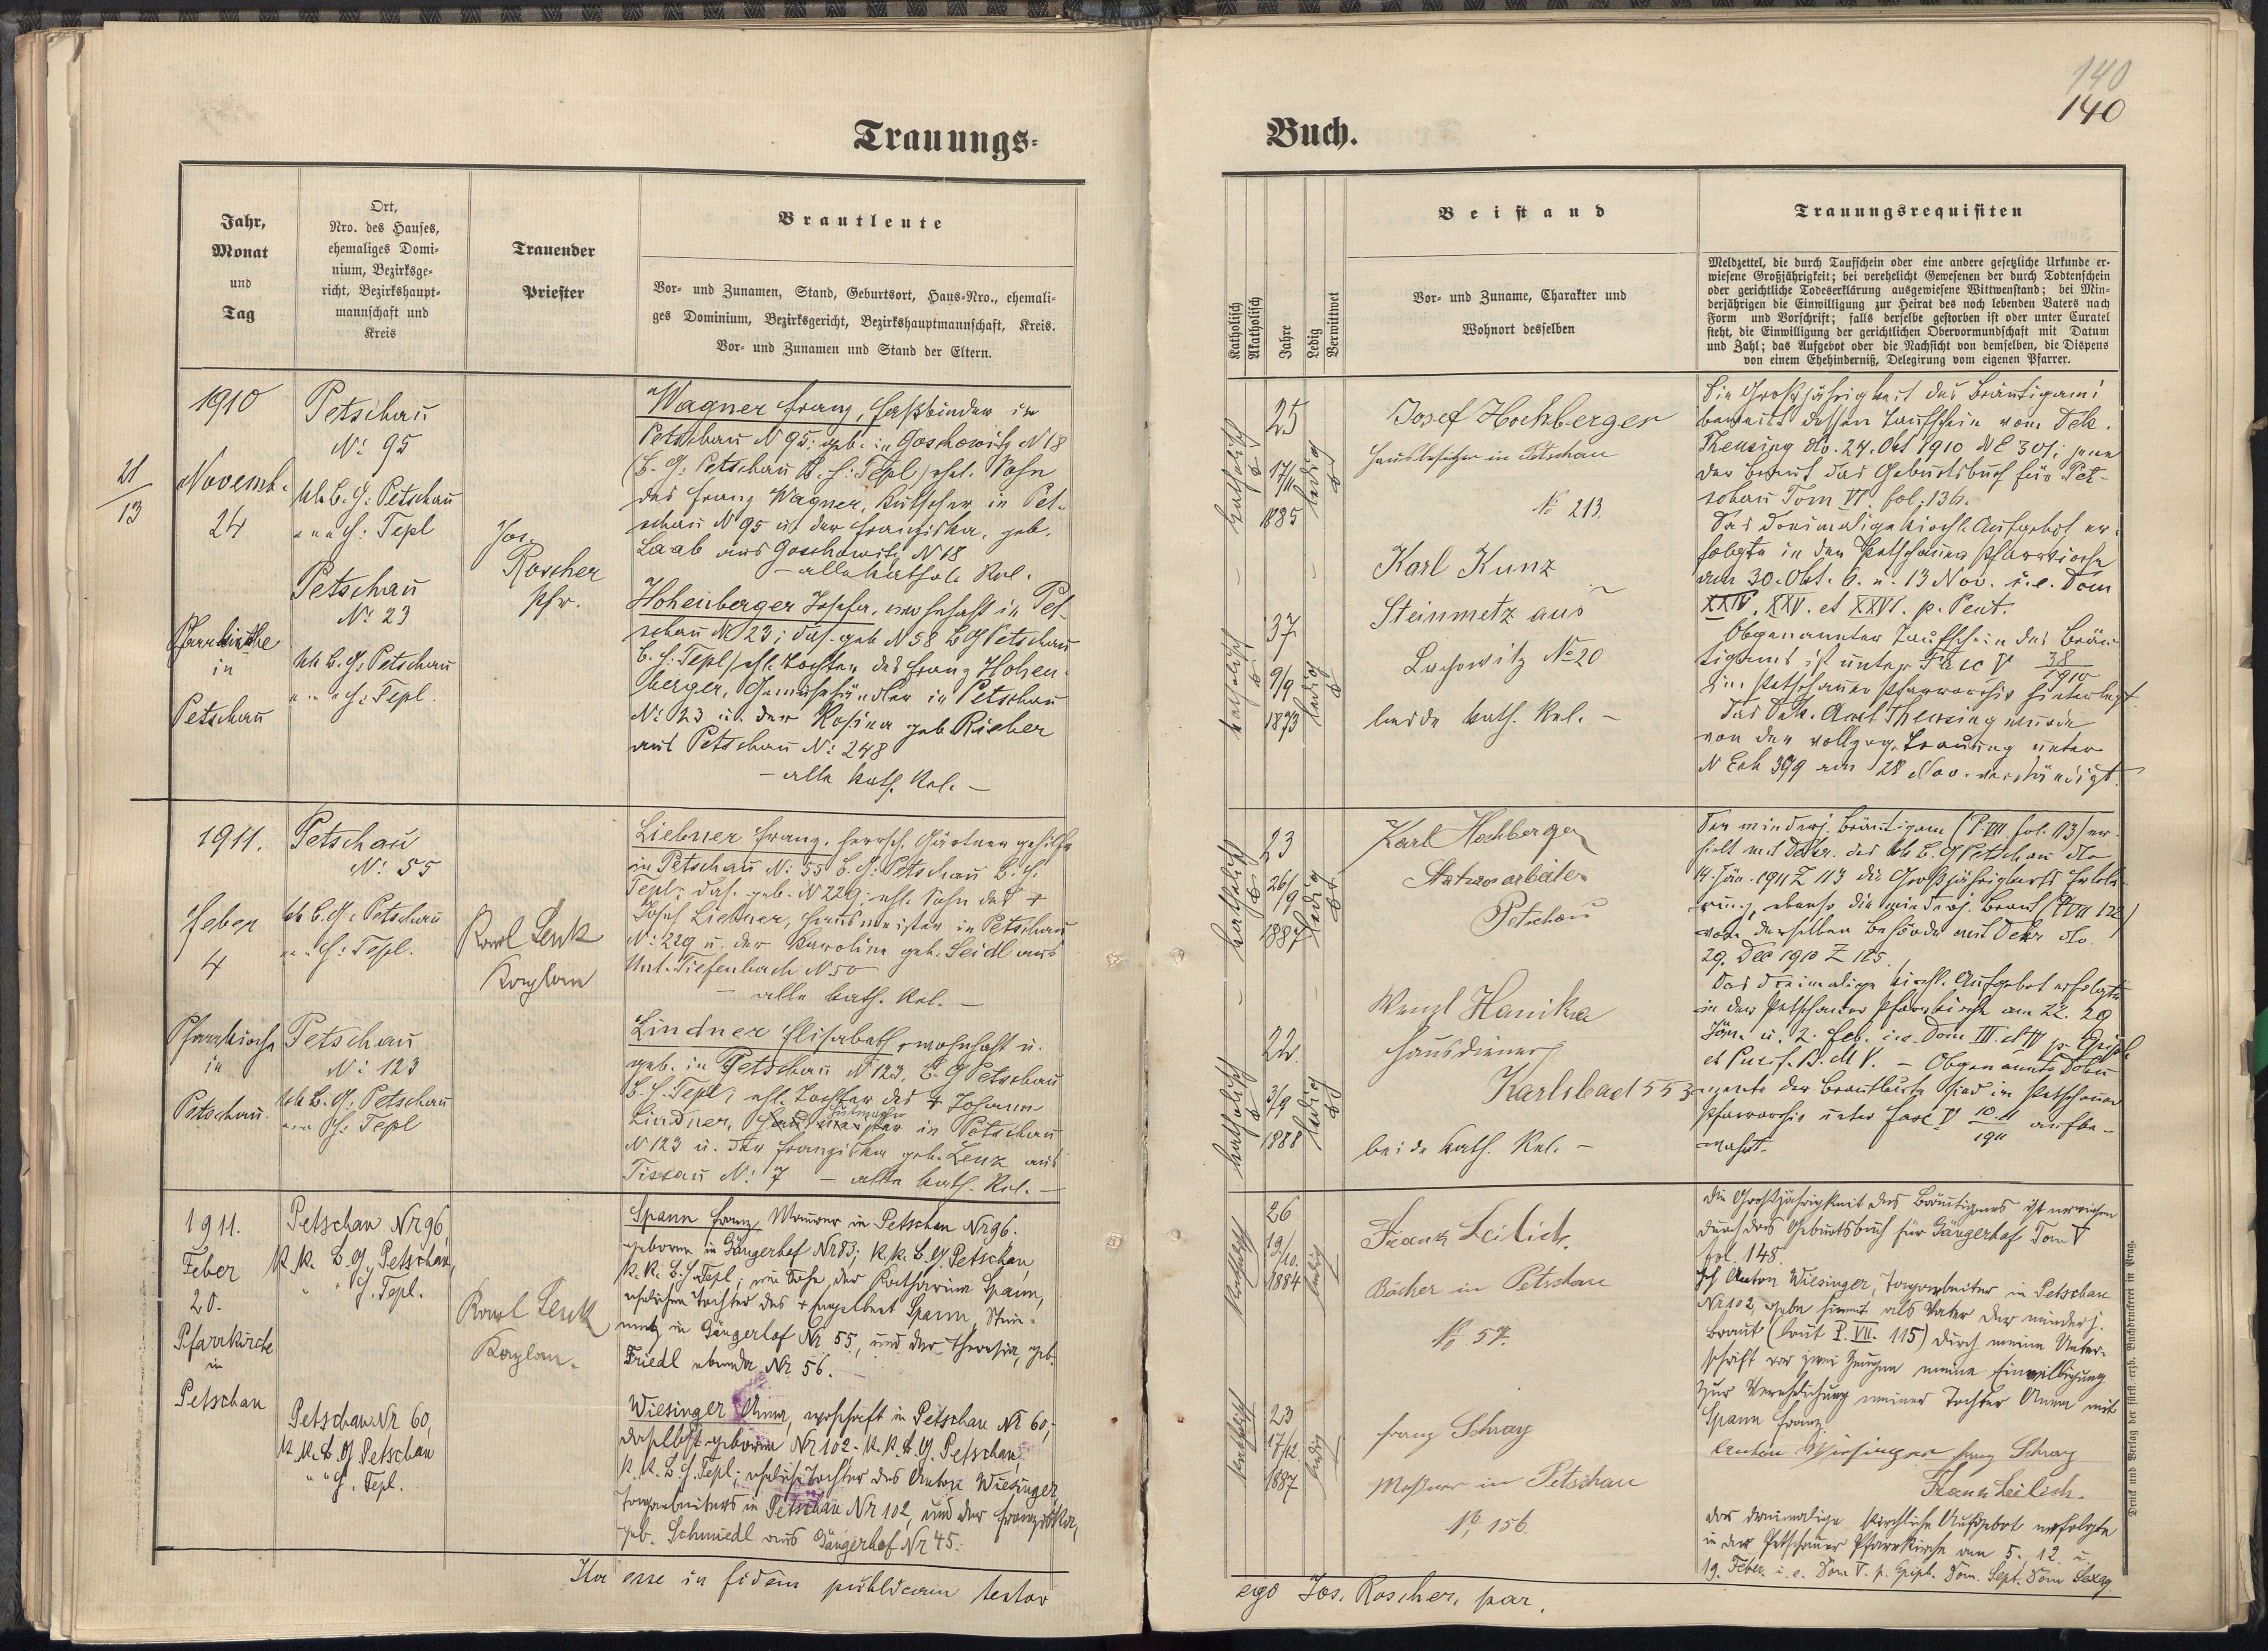 140
140
Trauungs-
Buch.
Jahr,
Monat
und
Tag
Ort,
Nro. des Hauses,
ehemaliges Domi-
nium, Bezirksge-
richt, Bezirkshaupt-
mannschaft und
Kreis
Trauender
Priester
Brautleute
Vor- und Zunamen, Stand, Geburtsort, Haus-Nro., ehemali-
ges Dominium, Bezirksgericht, Bezirkshauptmannschaft, Kreis.
Vor- und Zunamen und Stand der Eltern.
Katholisch
Akatholisch
Jahre
Ledig
Verwittwet
Beistand
Vor- und Zuname, Charakter und
Wohnort desselben
Trauungsrequisiten
Meldzettel, die durch Taufschein oder eine andere gesetzliche Urkunde er-
wiesene Großjährigkeit; bei verehelicht Gewesenen der durch Todtenschein
oder gerichtliche Todeserklärung ausgewiesene Wittwenstand; bei Min-
derjährigen die Einwilligung zur Heirat des noch lebenden Vaters nach
Form und Vorschrift; falls derselbe gestorben ist oder unter Curatel
steht, die Einwilligung der gerichtlichen Obervormundschaft mit Datum
und Zahl; das Aufgebot oder die Nachsicht von demselben, die Dispens
von einem Ehehinderniß, Delegirung vom eigenen Pfarrer.
21/13
1910
Novemb.
24
Pfarrkirche
in
Petschau
Petschau
N: 95
kk B. G: Petschau
" " " H: Tepl
Petschau
N: 23
kk B. G: Petschau
" " " H: Tepl.
Jos.
Roscher
Pfr.
Wagner Franz, Faßbinder in
Petschau N 95: geb. in Goschowitz N 18
(B. G: Petschau B. H: Tepl) ehel. Sohn
des Franz Wagner, Kutscher in Pet-
schau N 95 u. der Franziska, geb.
Laab aus Goschowitz N 18
- alle kathol. Rel.
Hohenberger Josefa, wohnhaft in Pet-
schau N 23; das. geb. N 58 B G Petschau
B. H: Tepl) ehl. Tochter des Franz Hohen-
berger, Gemüsehändler in Petschau
N: 23 u. der Rosina geb. Richer
aus Petschau N: 248
- alle kath. Rel. -
katholisch
25
17/11
1885
ledig
katholisch
37
9/9
1873
ledig
Josef Hochberger
Hausbesitzer in Petschau
No 213
Karl Kunz
Steinmetz aus
No 20
beide kath. Rel. -
Die Großjährigkeit des Bräutigams
beweist dessen Taufschein vom Dek.
Theusing dto. 24. Okt 1910 NE 301; jene
der Braut das Geburtsbuch für Pet-
schau Tom VI. fol. 136.
Das dreimalige kirchl. Aufgebot er-
folgte in der Petschauer Pfarrkirche
am 30. Okt. 6. u. 13 Nov. i.e. Dom
XXIV. XXV. et XXVI. p. Pent.
Obgenannter Taufschein des Bräu-
tigams ist unter Fasc V 38/1910
im Petschauer Pfarrarchiv hinterlegt.
Das Dek. Amt Theusing wurde
von der vollzog. Trauung unter
N Exh 399 am 28 Nov. verständigt.
1911.
Feber
4
Pfarrkirche
in
Petschau.
Petschau
N: 55
kk B. G: Petschau
" " H: Tepl.
Petschau
N: 123
kk B. G: Petschau
" " H: Tepl
Karl Lenk
Kaplan
Liebner Franz, herrsch. Gärtnergehilfe
in Petschau N: 55 B. G: Petschau B. H.
Tepl; das. geb. N 229; ehl. Sohn des +
Josef Liebner, Hausmeister in Petschau
N: 229 u. der Karolina geb. Seidl aus
Unt. Tiefenbach N 50
- alle kath. Rel. -
Lindner Elisabeth, wohnhaft u.
geb. in Petschau N 123, B. G Petschau
B. H. Tepl; ehl. Tochter des + Johann
Lindner, Hutmacher in Petschau
N 123 u. der Franziska geb. Lenk aus
Tissau N: 7 - alle kath. Rel. -
katholisch
23
26/9
1887
ledig
katholisch
22
3/9
1888
ledig
Karl Hochberger
Petschau
Wenzl Hanika
Hausdiener
Karlsbad 553
beide kath. Rel. -
Der minderj. Bräutigam (P. VII. fol. 113) er-
hielt mit Dekr. des kk B. G Petschau dto
14. Jän. 1911 Z 113 die Großjährigkeits Erklä-
rung, ebenso die minderj. Braut (P VII 122)
von derselben Behörde mit Dekr dto.
29. Dec 1910 Z 185.
Das dreimalige kirchl. Aufgebot erfolgte
in der Petschauer Pfarrkirche am 22. 29
Jän. u. 2. Feb. i.e. Dom III. et IV p. Epiph
et Purif. B. M V. - Obgenannte Doku
mente der Brautleute sind im Petschauer
Pfarrarchiv unter Fasc. V 10. 11/1911 aufbe-
wahrt.
1911.
Feber
20.
Pfarrkirche
in
Petschau
Petschau Nr 96,
k. k. B. G. Petschau,
" " H. Tepl.
Petschau Nr 60,
k. k. B. G Petschau
" " H. Tepl.
Karl Lenk
Kaplan.
Spann Franz, Maurer in Petschau Nr 96.
geboren in Gängerhof Nr 83; k. k. B. G. Petschau,
k. k. B. H. Tepl; ein Sohn der Katharina Spann,
ehelichen Tochter des + Engelbert Spann, Stein-
metz in Gängerhof Nr. 55, und der Theresia, geb.
Friedl ebenda Nr 56.
Wiesinger Anna, wohnhaft in Petschau Nr 60,
daselbst geboren Nr 102 - k. k. B. G. Petschau,
k. k. B. H. Tepl; eheliche Tochter des Anton Wiesinger,
Tagarbeiters in Petschau Nr 102, und der Franziska,
geb. Schmiedl aus Gängerhof Nr 45.
katholisch
26
19/10.
1884
ledig
katholisch
23
17/12.
1887
ledig
Frank Leilich.
Bäcker in Petschau
No 57.
Franz Schray
Meßner in Petschau
No 156.
Die Großjährigkeit des Bräutigams ist erwiesen
durch das Geburtsbuch für Gängerhof Tom V
fol. 148.
Ich Anton Wiesinger, Tagarbeiter in Petschau
Nr 102, gebe hiemit als Vater der minderj.
Braut (laut P. VII. 115) durch meine Unter-
schrift vor zwei Zeugen meine Einwilligung
zur Verehelichung meiner Tochter Anna mit
Spann Franz.
Anton Wiesinger Franz Schray
Frank Leilich.
Das dreimalige kirchliche Aufgebot erfolgte
in der Petschauer Pfarrkirche am 5., 12. u.
19. Feber. i. e. Dom V. p. Epiph. Dom. Sept. Dom Sexag.
Ita esse in fidem publicam testor
ego Jos. Roscher, par.
Druck und Verlag der fürst.-erzb. Buchdruckerei in Prag.